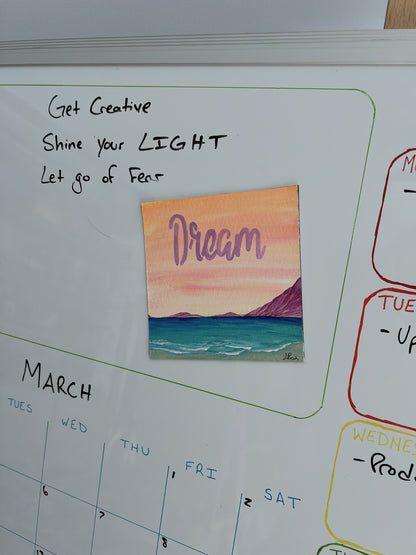 Get Creative
Shine your LIGHT
Let go of Fear
Dream
MARCH
TUES WED THU FRI SAT
1 2
6 7 8
TUE
- Up
WEDNES
- Prod